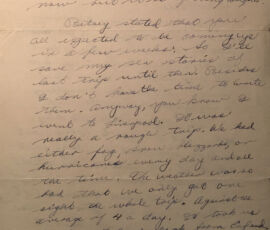 Betsey stated that you're
all expected to be coming up
in a few weeks. So I'll
save my sea stories of
last trip until then. Besides
I don't have the time to write
them anyway, you know I
went to Liverpool. It was
really a rough trip. We had
either fog, snow, or
hurricanes every day and all
the time. The weather was so
bad that we only got one
sight the whole trip. Against an
average of 4 a day. It took us